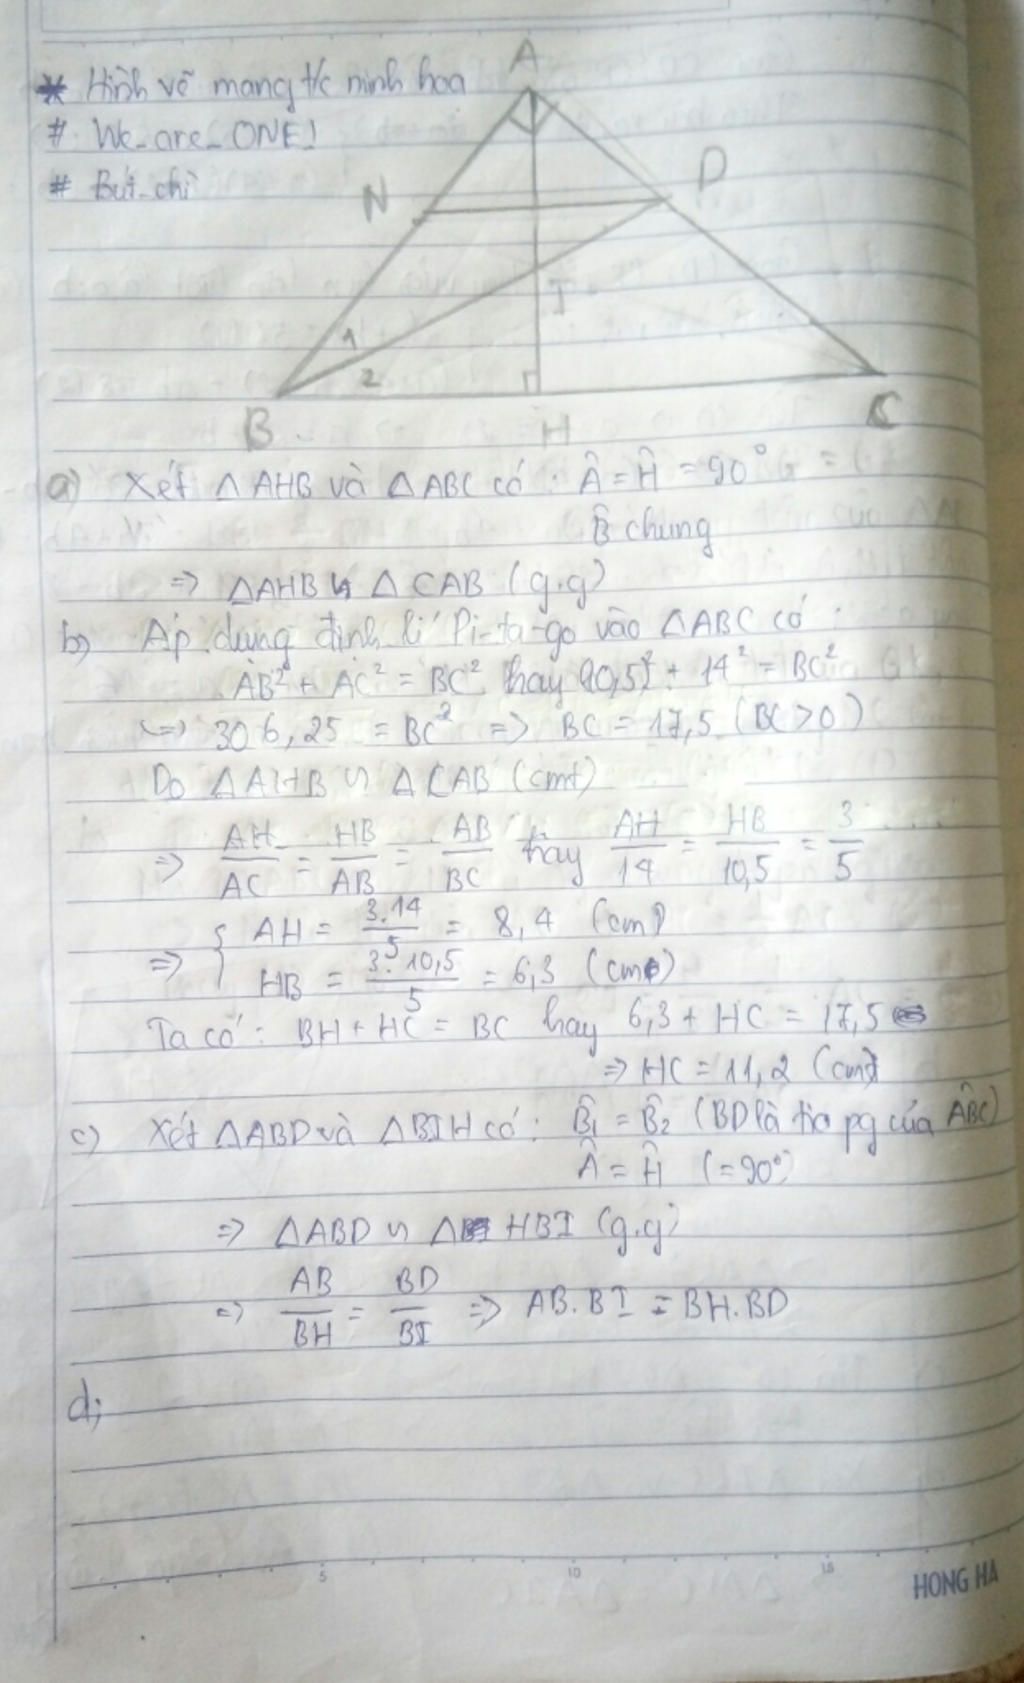 * Hình vẽ mang t/c minh hoạ
# We_are_ONE!
# Bút_chì
A
N
D
I
1
2
B
H
C
a) Xét △AHB và △ABC có : Â = Ĥ = 90°
B̂ chung
=> △AHB ᔕ △CAB (g.g)
b) Áp dụng định lí Pi-ta-go vào △ABC có :
AB² + AC² = BC² hay 10,5² + 14² = BC²
<=> 306,25 = BC² => BC = 17,5 (BC > 0)
Do △AHB ᔕ △CAB (cmt)
=> AH/AC = HB/AB = AB/BC hay AH/14 = HB/10,5 = 3/5
=> { AH = 3.14/5 = 8,4 (cm)
HB = 3.10,5/5 = 6,3 (cm)
Ta có : BH + HC = BC hay 6,3 + HC = 17,5
=> HC = 11,2 (cm)
c) Xét △ABD và △BIH có : B̂₁ = B̂₂ (BD là tia pg của AB̂C)
Â = Ĥ (= 90°)
=> △ABD ᔕ △HBI (g.g)
=> AB/BH = BD/BI => AB.BI = BH.BD
d;
5 10 15
HONG HA